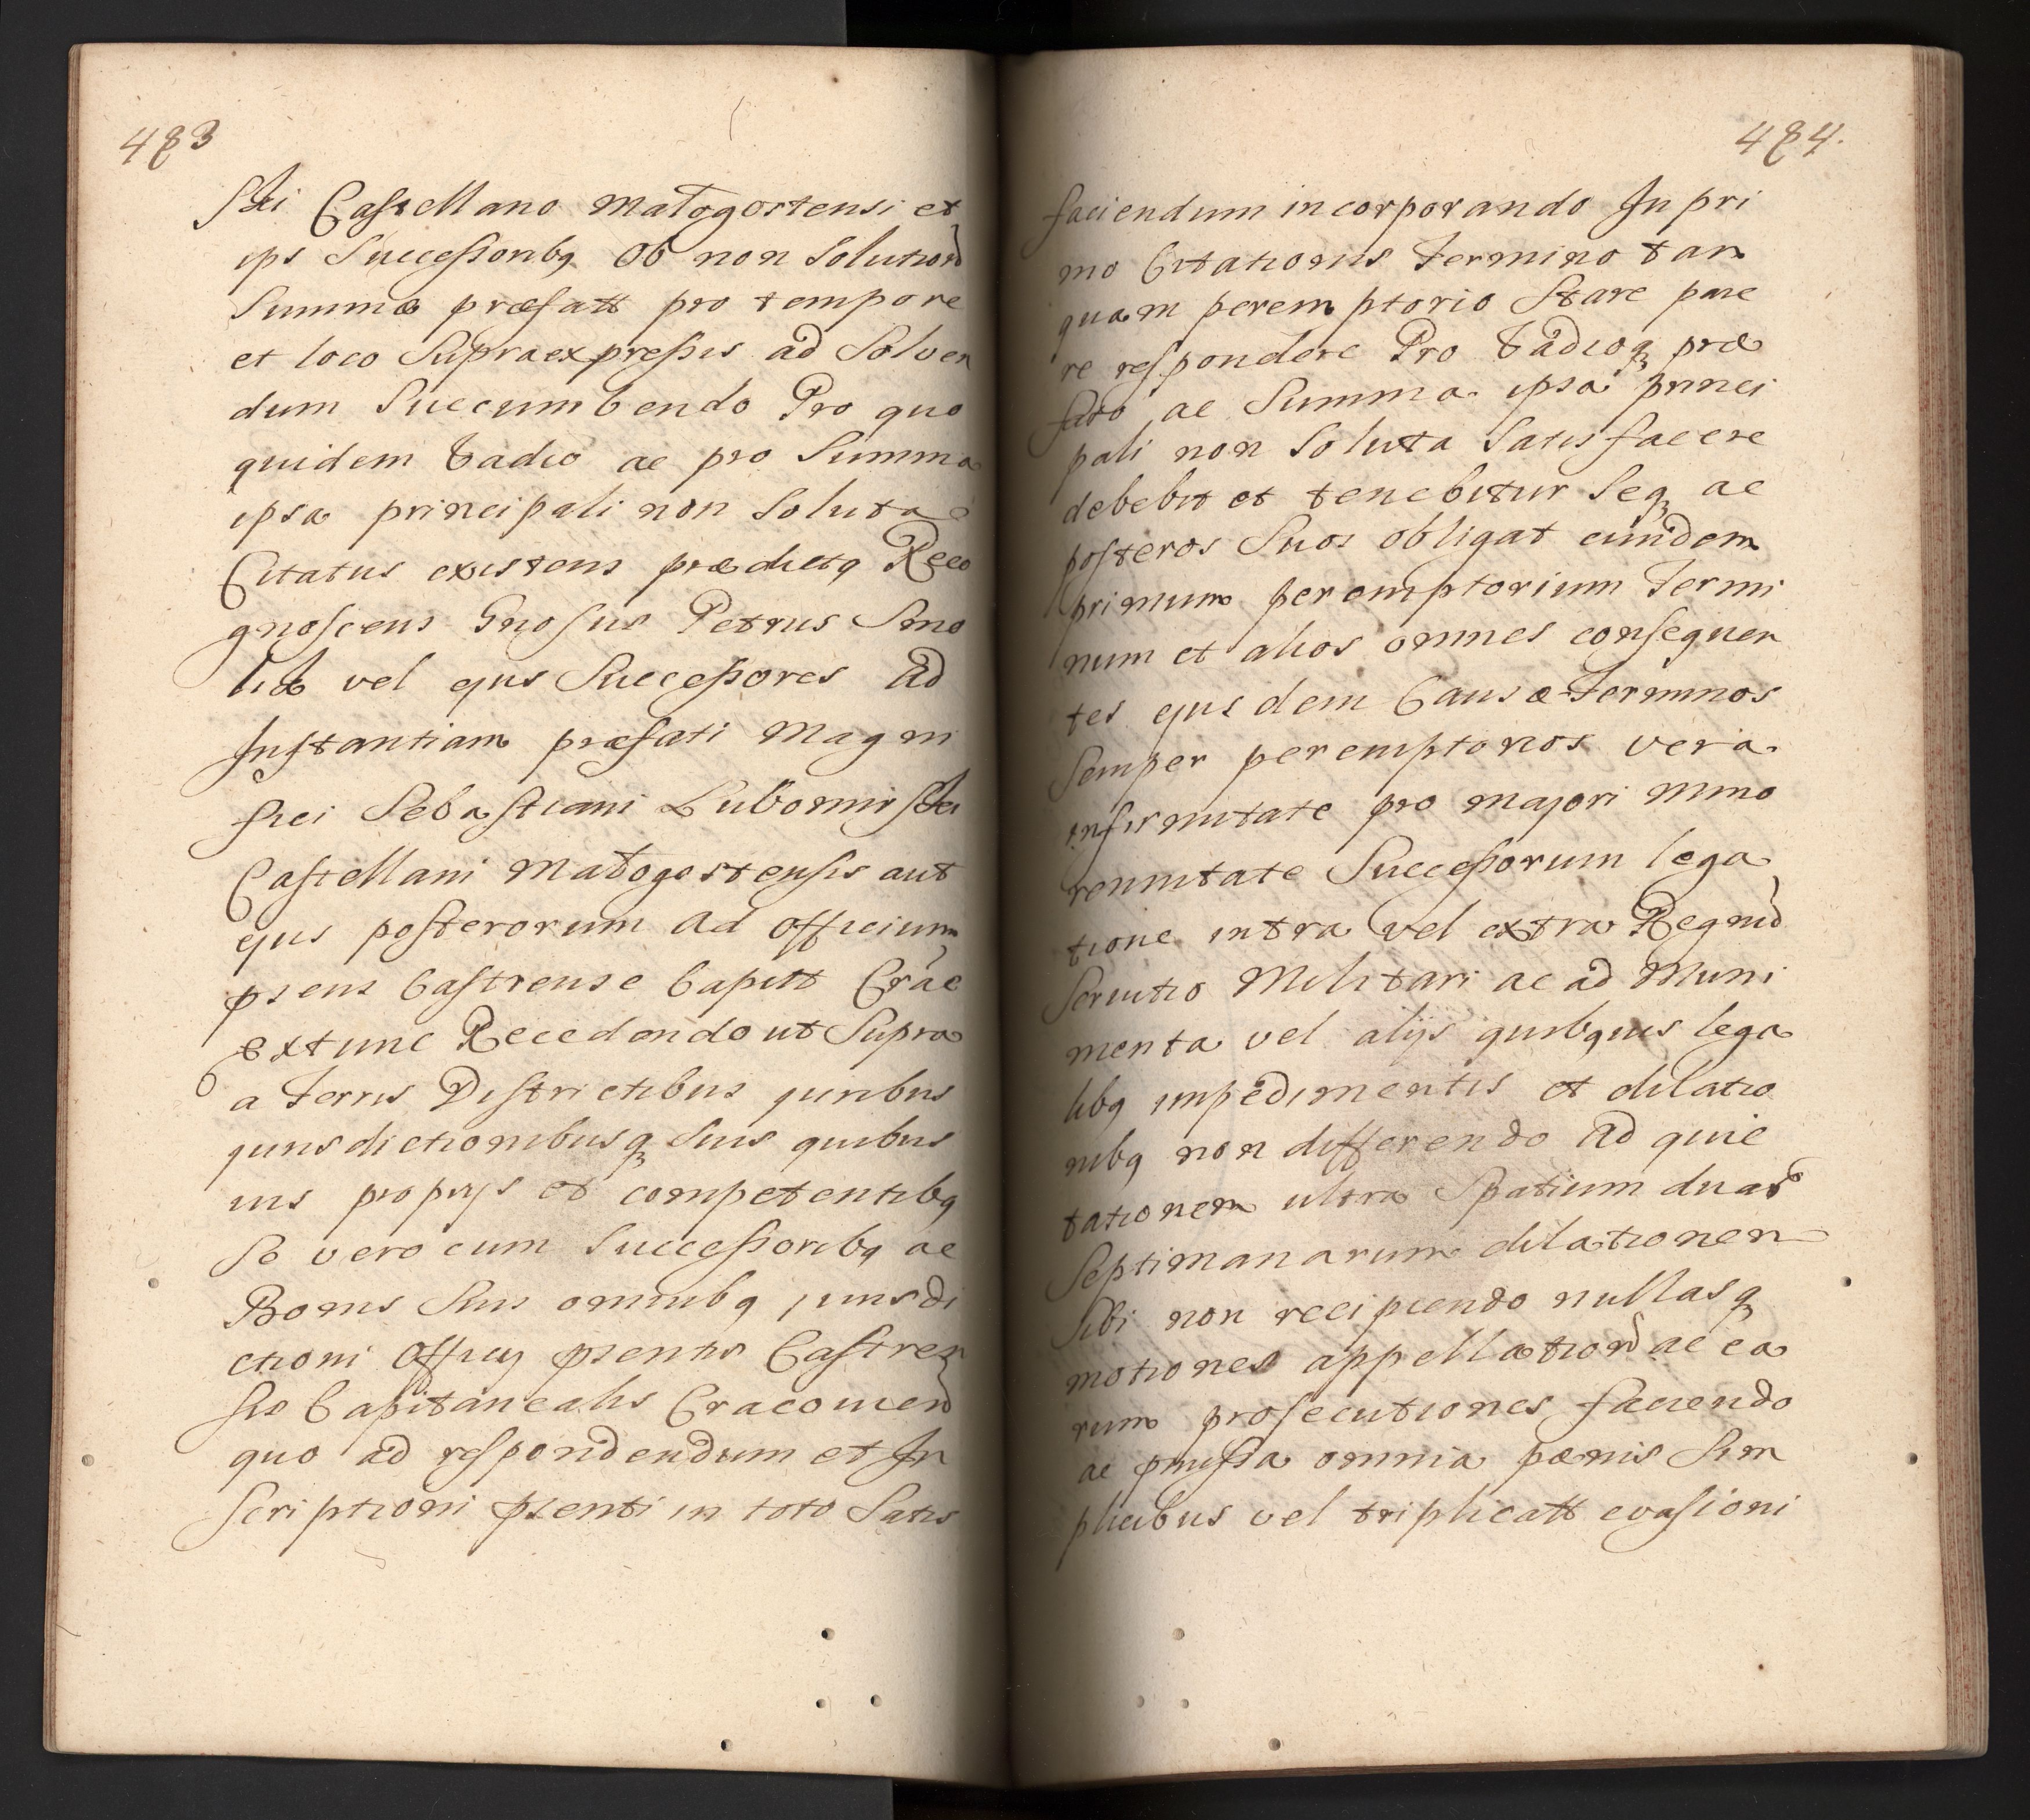 483
ski Castellano Małogostensi et
ips Successoribq Ob non Solution
Summæ præfatt pro tempore
et loco Supraexpressis ad Solven
dum Succumbendo Pro quo
quidem Vadio ac pro Summa
ipsa principali non Soluta
Citatus existens prædictq Reco
gnoscens Gnosus Petrus Smo
lik vel ejus Successores ad
Instantiam præfati Magni
fici Sebastiani Lubomirski
Castellani Małogostensis aut
ejus posterorum ad Officium
psens Castrense Capitt Crac
extunc Recedendo ut Supra
a Terris Districtibus juribus
jurisdictionibusq Suis quibus
vis proprijs et competentibq
Se vero cum Successoribq ac
Bonis Suis omnibq jurisdi
ctioni Officij psentis Castren
sis Capitanealis Cracovien
quo ad respondendum et In
scriptioni psenti in toto Satis
484.
faciendum incorporando In pri
mo Citationis Termino tan
quam peremptorio Stare pare
re respondere Pro Vadioq præ
fato ac Summa ipsa princi
pali non Soluta Satisfacere
debebit et tenebitur Seq ac
posteros Suos obligat eundem
primum peremptorium Termi
num et alios omnes consequen
tes ejusdem Causæ Terminos
Semper peremptorios vera
infirmitate pro majori mino
rennitate Successorum lega
tione intra vel extra Regnu
Servitio Militari ac ad Muni
menta vel alijs quibqvis lega
libq impedimentis et dilatio
nibq non differendo Ad quie
tationem ultra Spatium duar
Septimanarum dilationem
Sibi non recipiendo nullasq
motiones appellation ac ea
rum prosecutiones faciendo
ac pmissa omnia pœnis Sim
plicibus vel triplicatt evasioni